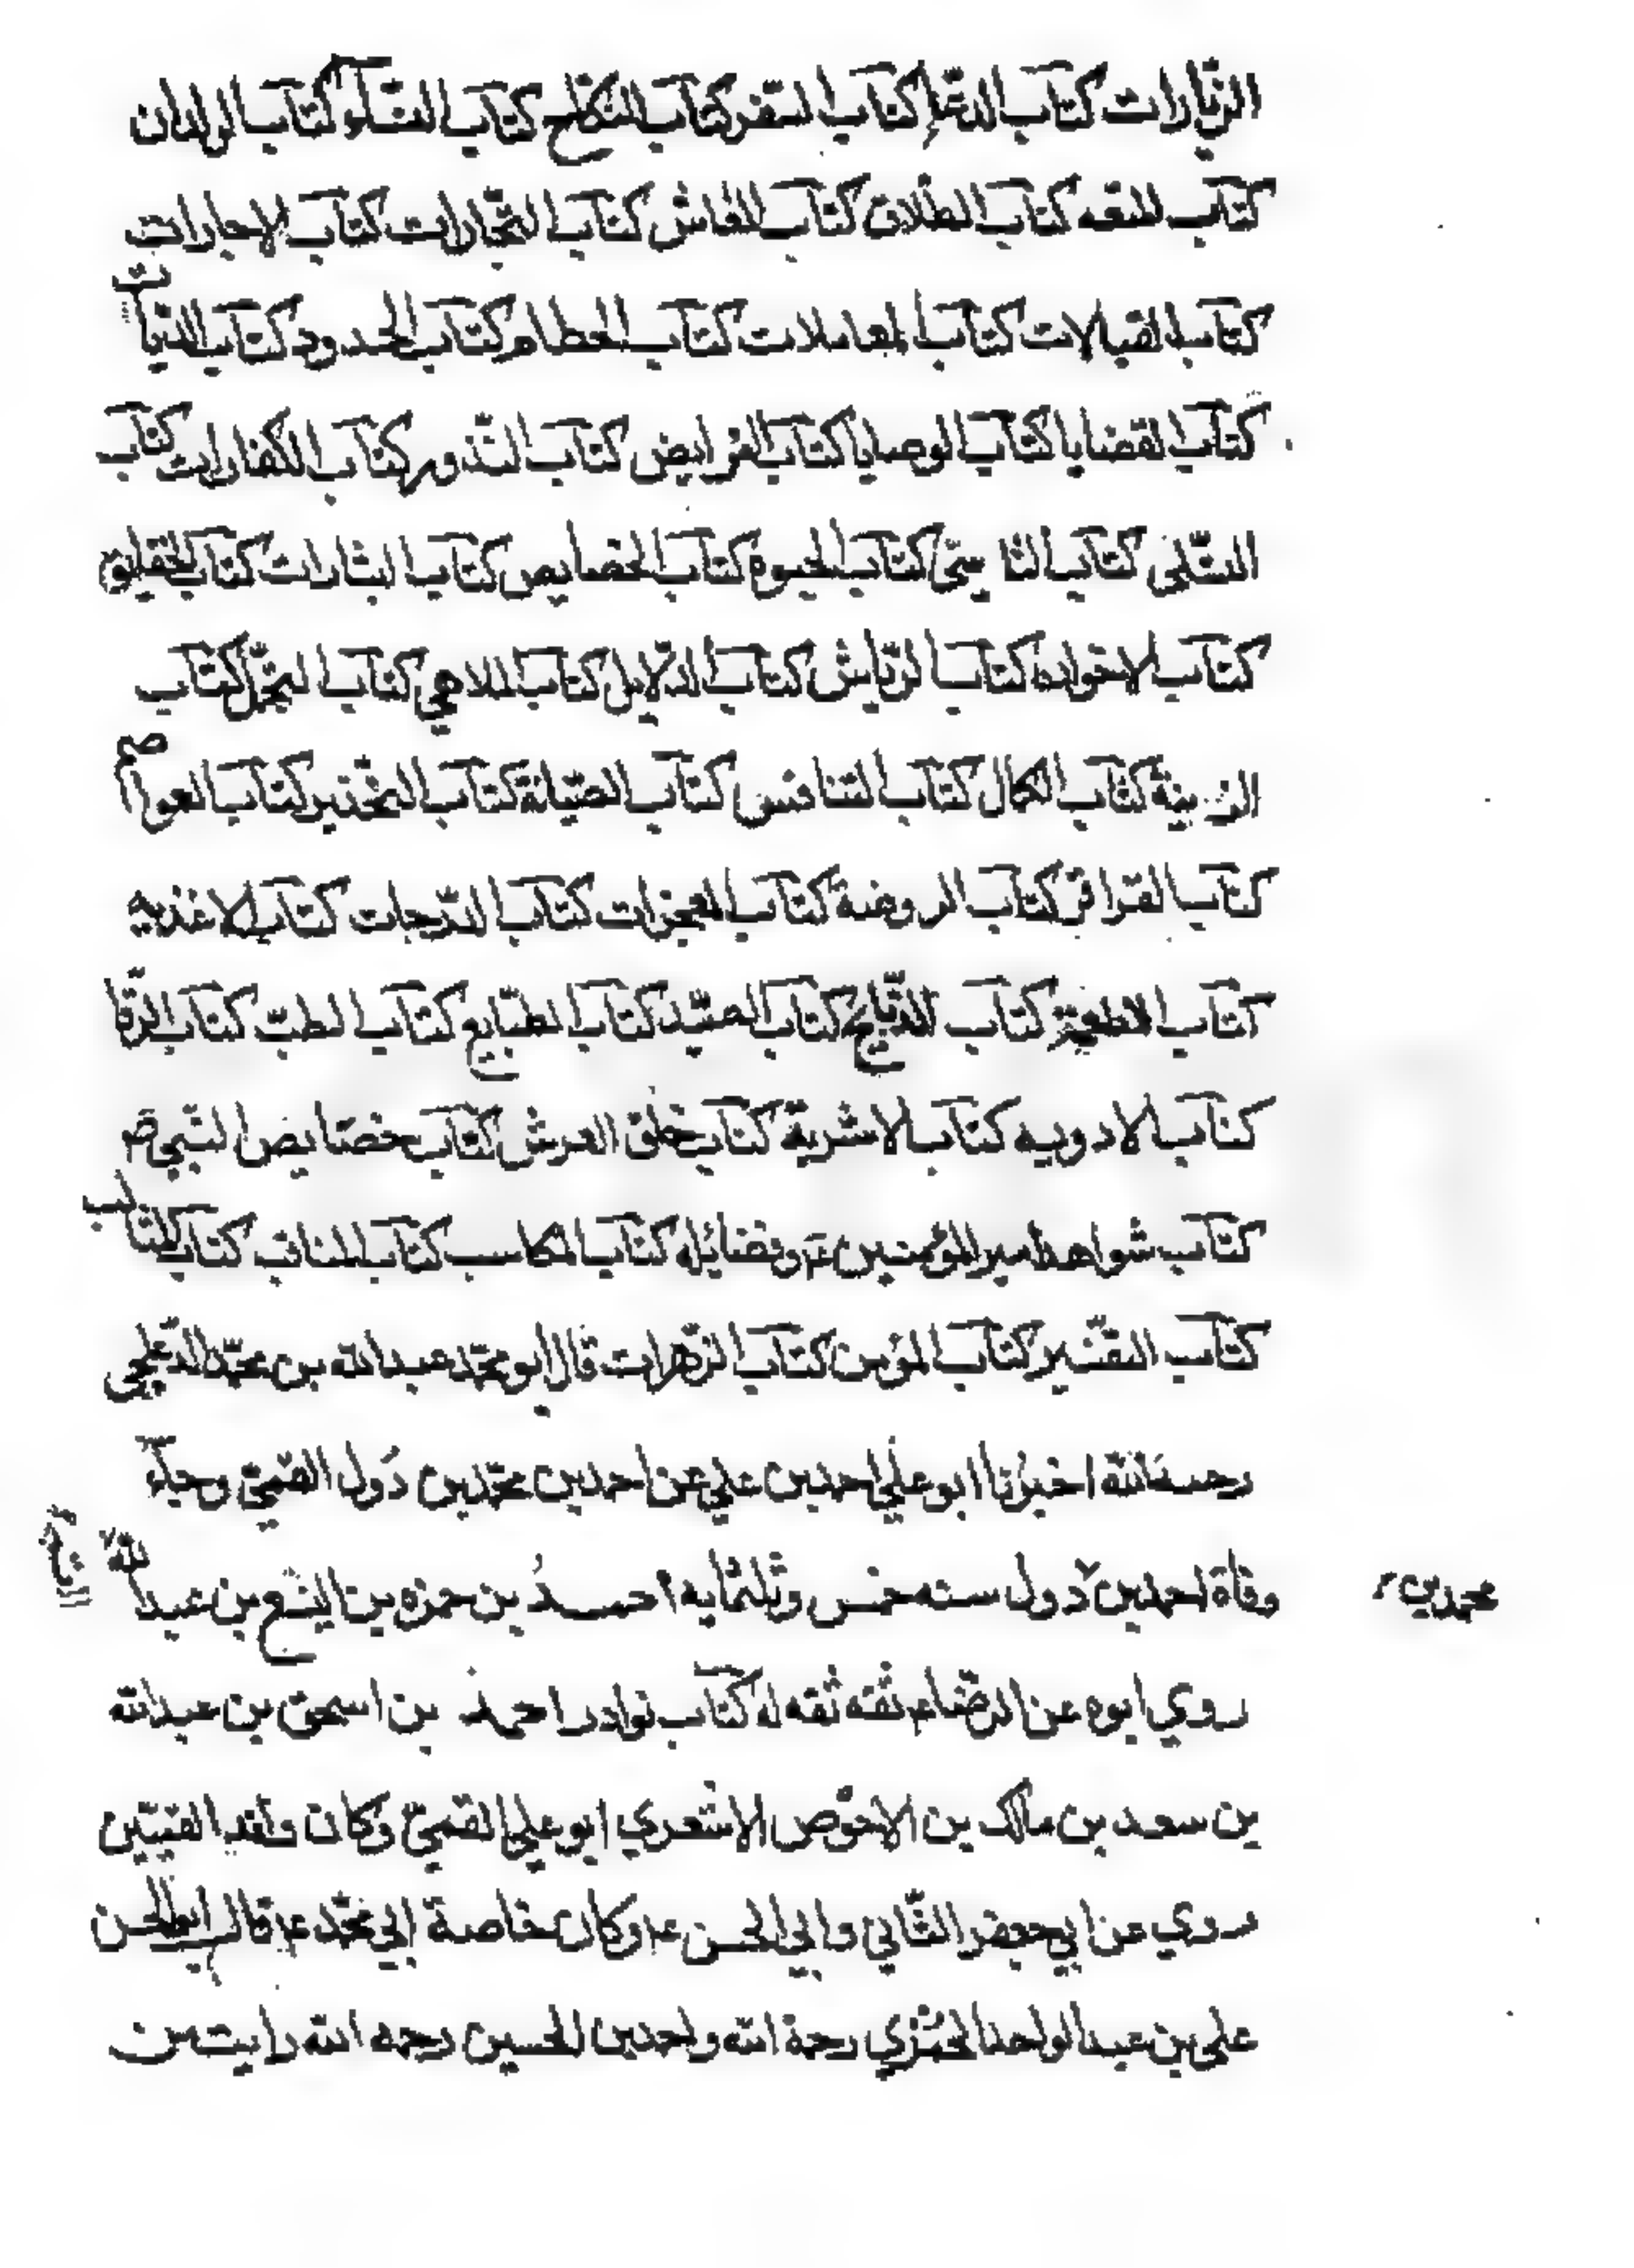 الزّيارات كتاب الدعاء كتاب السّفر كتاب النكاح كتاب النسآء كتاب الولدان
كتاب المتعه كتاب الطلاق كتاب المعاش كتاب التّجارات كتاب الاجارات
كتاب القبالات كتاب المعاملات كتاب الحطام كتاب الحدود كتاب الديات
كتاب القضايا كتاب الوصايا كتاب الفرايض كتاب النّذور كتاب الكفارات كتاب
التسلى كتاب التاسى كتاب الحبوه كتاب الخصايص كتاب البشارات كتاب الحقايق
كتاب الاخوان كتاب الرّياش كتاب الدلايل كتاب الملاهي كتاب التجمّل كتاب
الزينة كتاب الكمال كتاب التنافس كتاب الصّيانة كتاب التختير كتاب العواصم
كتاب القرائن كتاب الروضة كتاب المعجزات كتاب الدّرجات كتاب الاغذيه
كتاب الاطعمة كتاب الذّبايح كتاب الصّيد كتاب الطبّايع كتاب الطبّ كتاب الرّقا
كتاب الادويه كتاب الاشربة كتاب خلق العرش كتاب خصايص النّبي ص
كتاب شواهد امير المؤمنين ع وفضائله كتاب المكاسب كتاب المناقب كتاب المثالب
كتاب التفسير كتاب المؤمن كتاب الزّهرات قال ابو محمّد عبد الله بن محمّد الدّعلجي
رحمه الله اخبرنا ابو علي احمد بن علي عن احمد بن محمّد بن دُول القمّيّ وجآء
محمد بن
وفاة احمد بن دول سنه خمس وثلثمايه احمدُ بن حمزه بن اليسع بن عبد الله
روي ابوه عن الرضّا ع ثقه ثقه له كتاب نوادر احمد بن اسحق بن عبد الله
بن سعد بن مالك بن الاحوص الاشعري ابو علي القميّ وكان وافد القميّين
روي عن ابي جعفر الثّاني وابي الحسن ع وكان خاصة ابي محمّد ع قال ابو الحسن
علي بن عبد الواحد الخُمْري رحمة الله واحمد بن الحسين رحمه الله رايت من